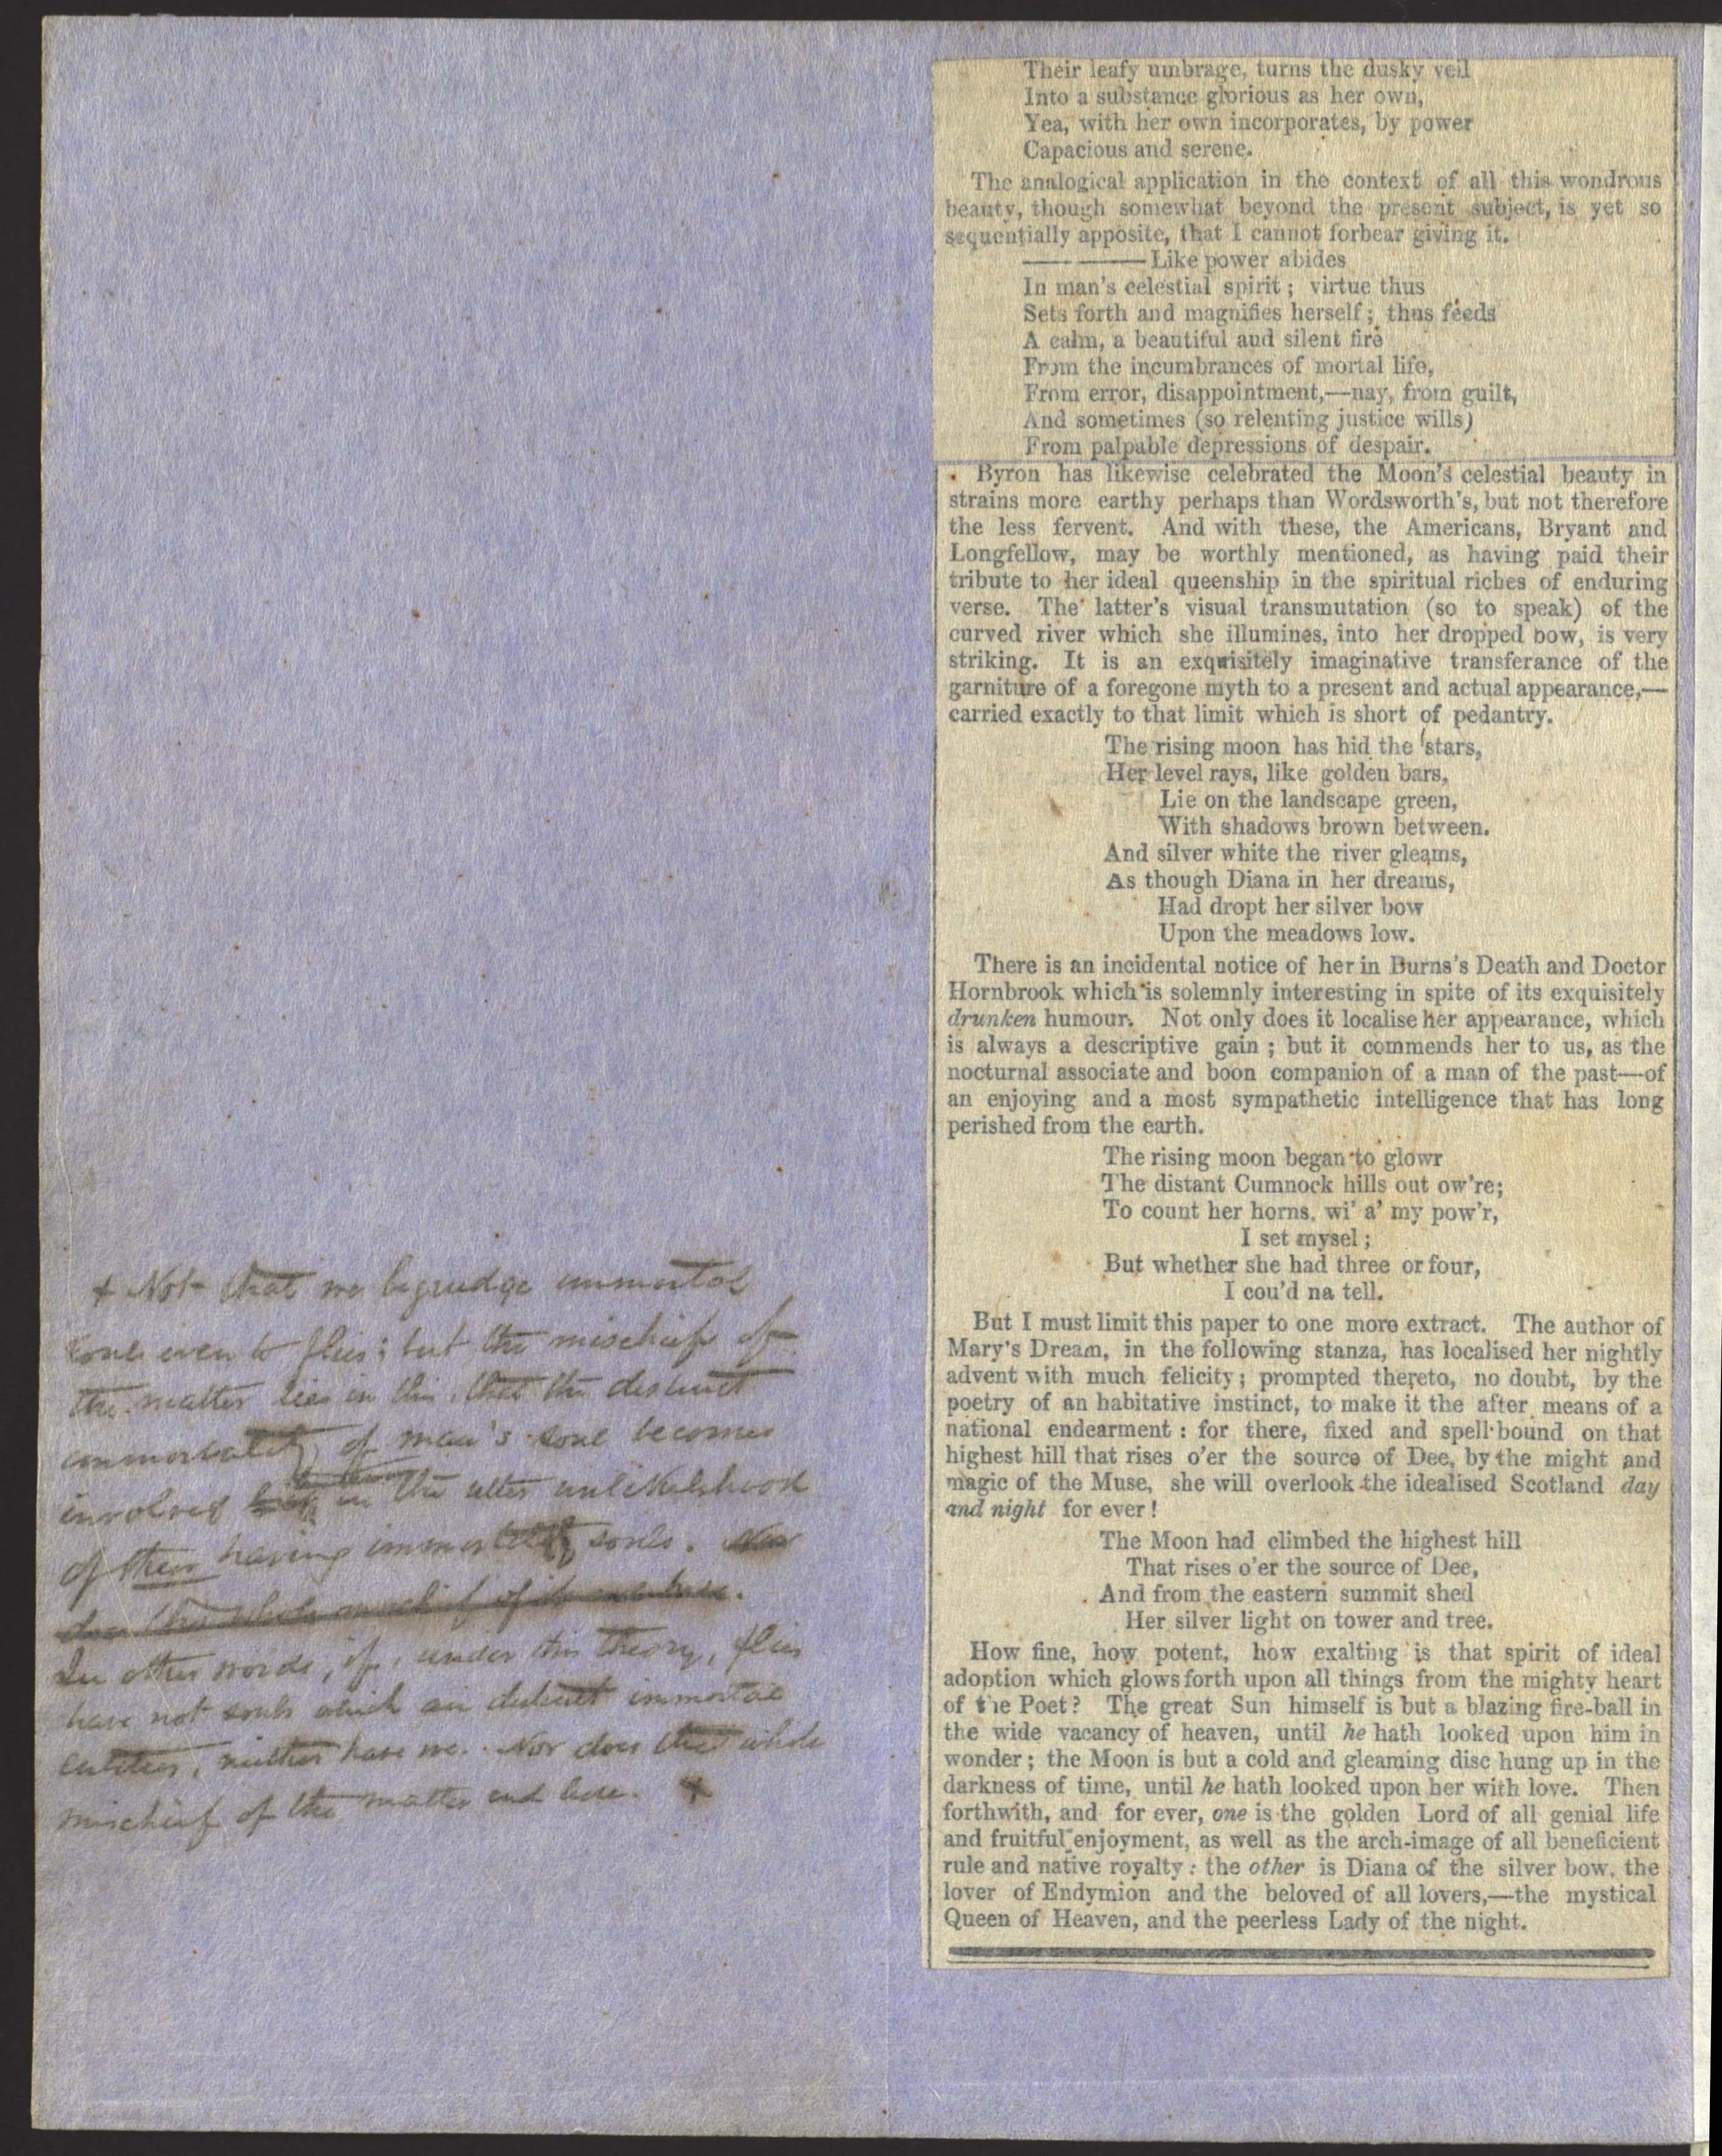 + Not that we begrudge immortal
souls even to flies; but the mischief of
the matter lies in this, that the distinct
immortality of man's soul becomes
involved in the utter unlikelihood
of their having immortal souls. Nor
does the whole mischief of it end here.
In other words, if, under this theory, flies
have not souls which are distinct immortal
entities, neither have we. Nor does the whole
mischief of the matter end here. +
Their leafy umbrage, turns the dusky veil
Into a substance glorious as her own,
Yea, with her own incorporates, by power
Capacious and serene.
The analogical application in the context of all this wondrous
beauty, though somewhat beyond the present subject, is yet so
sequentially apposite, that I cannot forbear giving it.
—— ——Like power abides
In man's celestial spirit; virtue thus
Sets forth and magnifies herself; thus feeds
A calm, a beautiful and silent fire
From the incumbrances of mortal life,
From error, disappointment,—nay, from guilt,
And sometimes (so relenting justice wills)
From palpable depressions of despair.
Byron has likewise celebrated the Moon's celestial beauty in
strains more earthy perhaps than Wordsworth's, but not therefore
the less fervent. And with these, the Americans, Bryant and
Longfellow, may be worthly mentioned, as having paid their
tribute to her ideal queenship in the spiritual riches of enduring
verse. The latter's visual transmutation (so to speak) of the
curved river which she illumines, into her dropped bow, is very
striking. It is an exquisitely imaginative transferance of the
garniture of a foregone myth to a present and actual appearance,—
carried exactly to that limit which is short of pedantry.
The rising moon has hid the stars,
Her level rays, like golden bars,
Lie on the landscape green,
With shadows brown between.
And silver white the river gleams,
As though Diana in her dreams,
Had dropt her silver bow
Upon the meadows low.
There is an incidental notice of her in Burns's Death and Doctor
Hornbrook which is solemnly interesting in spite of its exquisitely
drunken humour. Not only does it localise her appearance, which
is always a descriptive gain; but it commends her to us, as the
nocturnal associate and boon companion of a man of the past—of
an enjoying and a most sympathetic intelligence that has long
perished from the earth.
The rising moon began to glowr
The distant Cumnock hills out ow're;
To count her horns, wi' a' my pow'r,
I set mysel;
But whether she had three or four,
I cou'd na tell.
But I must limit this paper to one more extract. The author of
Mary's Dream, in the following stanza, has localised her nightly
advent with much felicity; prompted thereto, no doubt, by the
poetry of an habitative instinct, to make it the after means of a
national endearment: for there, fixed and spell-bound on that
highest hill that rises o'er the source of Dee, by the might and
magic of the Muse, she will overlook the idealised Scotland day
and night for ever!
The Moon had climbed the highest hill
That rises o'er the source of Dee,
And from the eastern summit shed
Her silver light on tower and tree.
How fine, how potent, how exalting is that spirit of ideal
adoption which glows forth upon all things from the mighty heart
of the Poet? The great Sun himself is but a blazing fire-ball in
the wide vacancy of heaven, until he hath looked upon him in
wonder; the Moon is but a cold and gleaming disc hung up in the
darkness of time, until he hath looked upon her with love. Then
forthwith, and for ever, one is the golden Lord of all genial life
and fruitful enjoyment, as well as the arch-image of all beneficient
rule and native royalty: the other is Diana of the silver bow, the
lover of Endymion and the beloved of all lovers,—the mystical
Queen of Heaven, and the peerless Lady of the night.